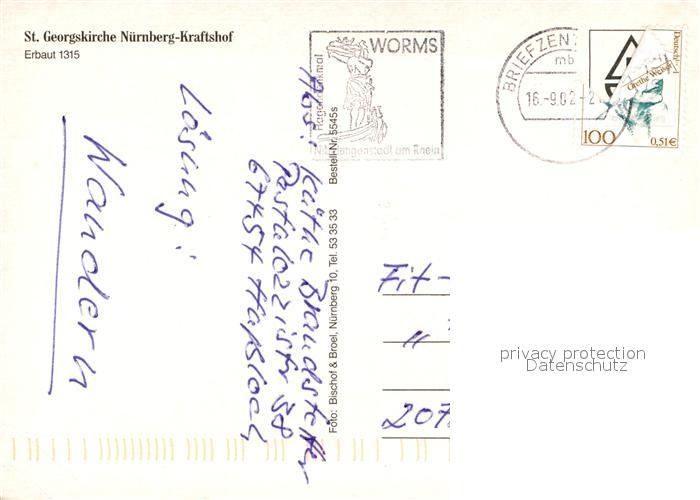 St. Georgskirche Nürnberg-Kraftshof
Erbaut 1315
WORMS
Hagendenkmal
Nibelungenstadt am Rhein
BRIEFZEN
mb
16.-9.02-2
Deutschl
Grethe Weiser
100
0,51€
Bestell-Nr. 5545s
Foto: Bischof & Broel, Nürnberg 10, Tel. 53 35 33
Abs.:
Käthe Brandstetter
Pestalozzistr 58
67454 Haßloch
Lösung:
Wandern
Fit-
"
207
privacy protection
Datenschutz